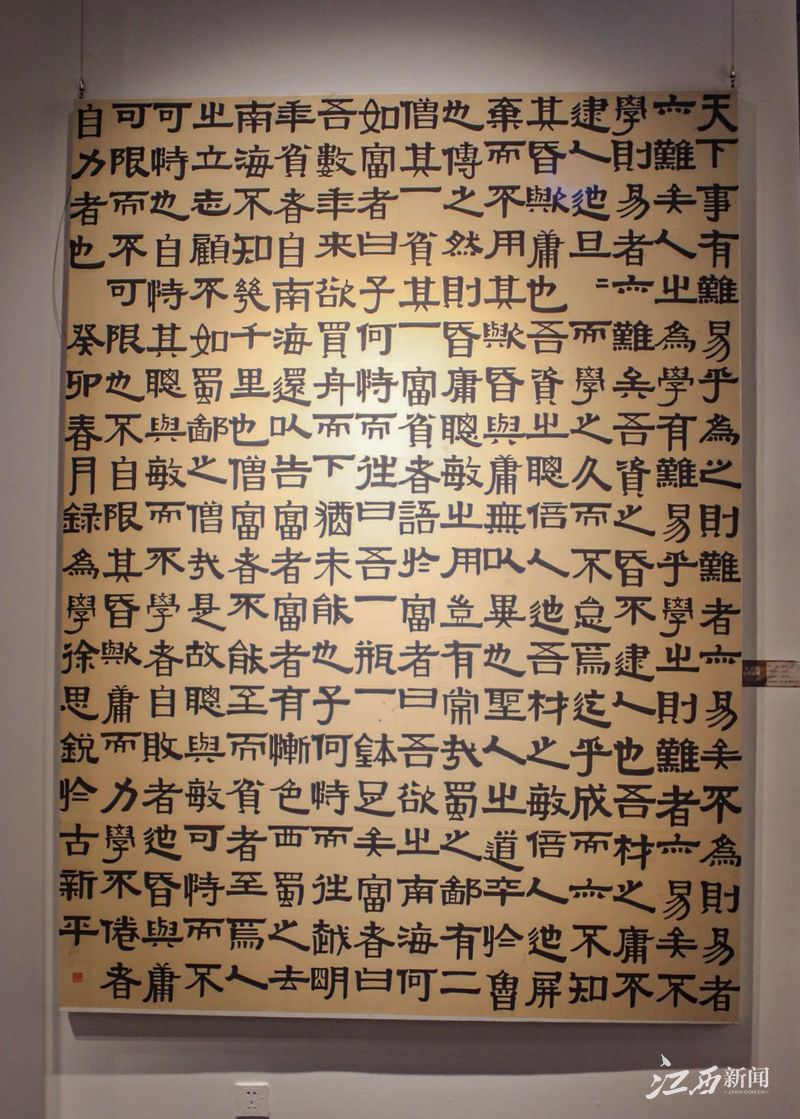 天下事有難易乎為之則難者亦易矣不為則易者
亦難矣人之為學有難易乎學之則難者亦易矣不
學則易者亦難矣吾資之昏不逮人也吾材之庸不
逮人也旦〻而學之久而不怠焉迄乎成而亦不知
其昏歟庸也吾資之聰倍人也吾材之敏倍人也屏
棄而不用其歟昏與庸無以異也聖人之道卒於魯
也傳之然則昏庸聰敏之用豈有常哉蜀之鄙有二
僧其一貧其一富貧者語於富者曰吾欲之南海何
如富者曰子何恃而往曰吾一瓶一鉢足矣富者曰
吾數年來欲買舟而下猶未能也子何恃而往越明
年貧者自南海還以告富者富者有慚色西蜀之去
南海不知幾千里也僧富者不能至而貧者至焉人
之立志顧不如蜀鄙之僧哉是故聰與敏可恃而不
可恃也自恃其聰與敏而不學者自敗者也昏與庸
可限而不可限也不自限其昏歟庸而力學不倦者
自力者也 癸卯春月錄為學徐思銳於古新平
江西新闻
JXXW.COM.CN